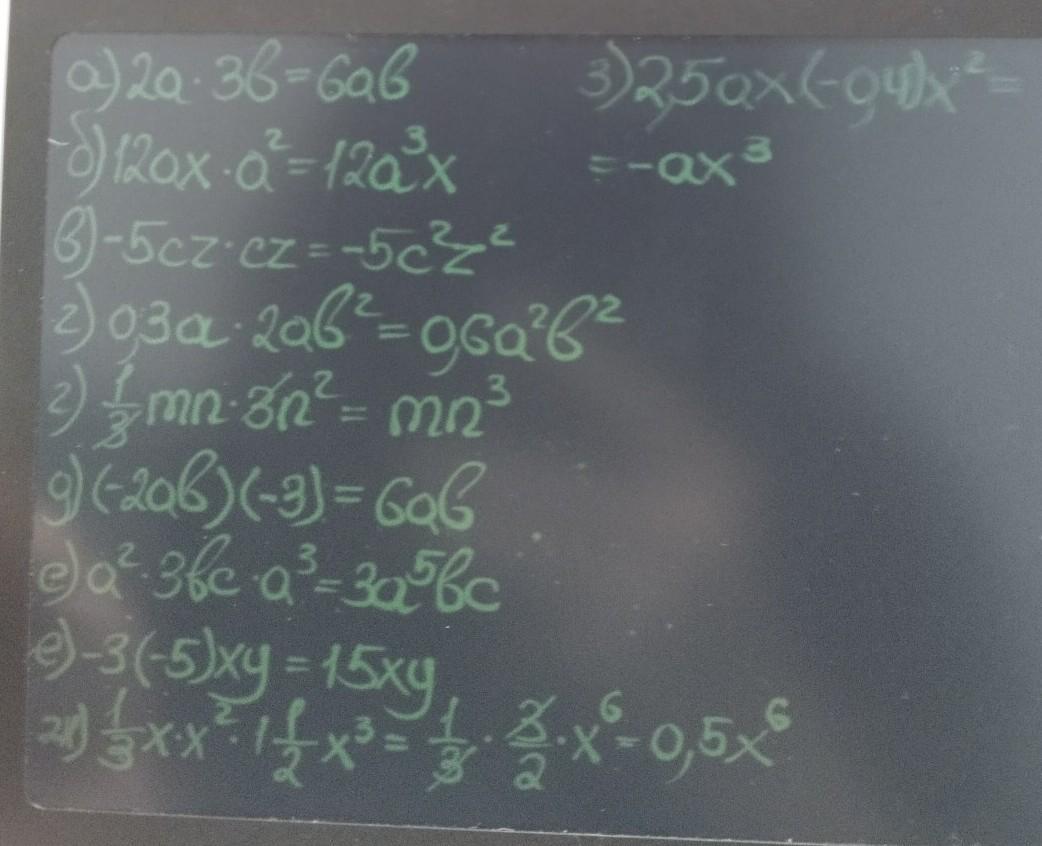 а) 2a · 3b = 6ab
б) 12ax · a² = 12a³x
в) -5cz · cz = -5c²z²
г) 0,3a · 2ab² = 0,6a²b²
г) 1/3 mn · 3n² = mn³
д) (-2ab)(-3) = 6ab
е) a² · 3bc · a³ = 3a⁵bc
е) -3(-5)xy = 15xy
ж) 1/3 x · x² · 1 1/2 x³ = 1/3 · 3/2 · x⁶ = 0,5x⁶
з) 2,5ax(-0,4)x² =
= -ax³